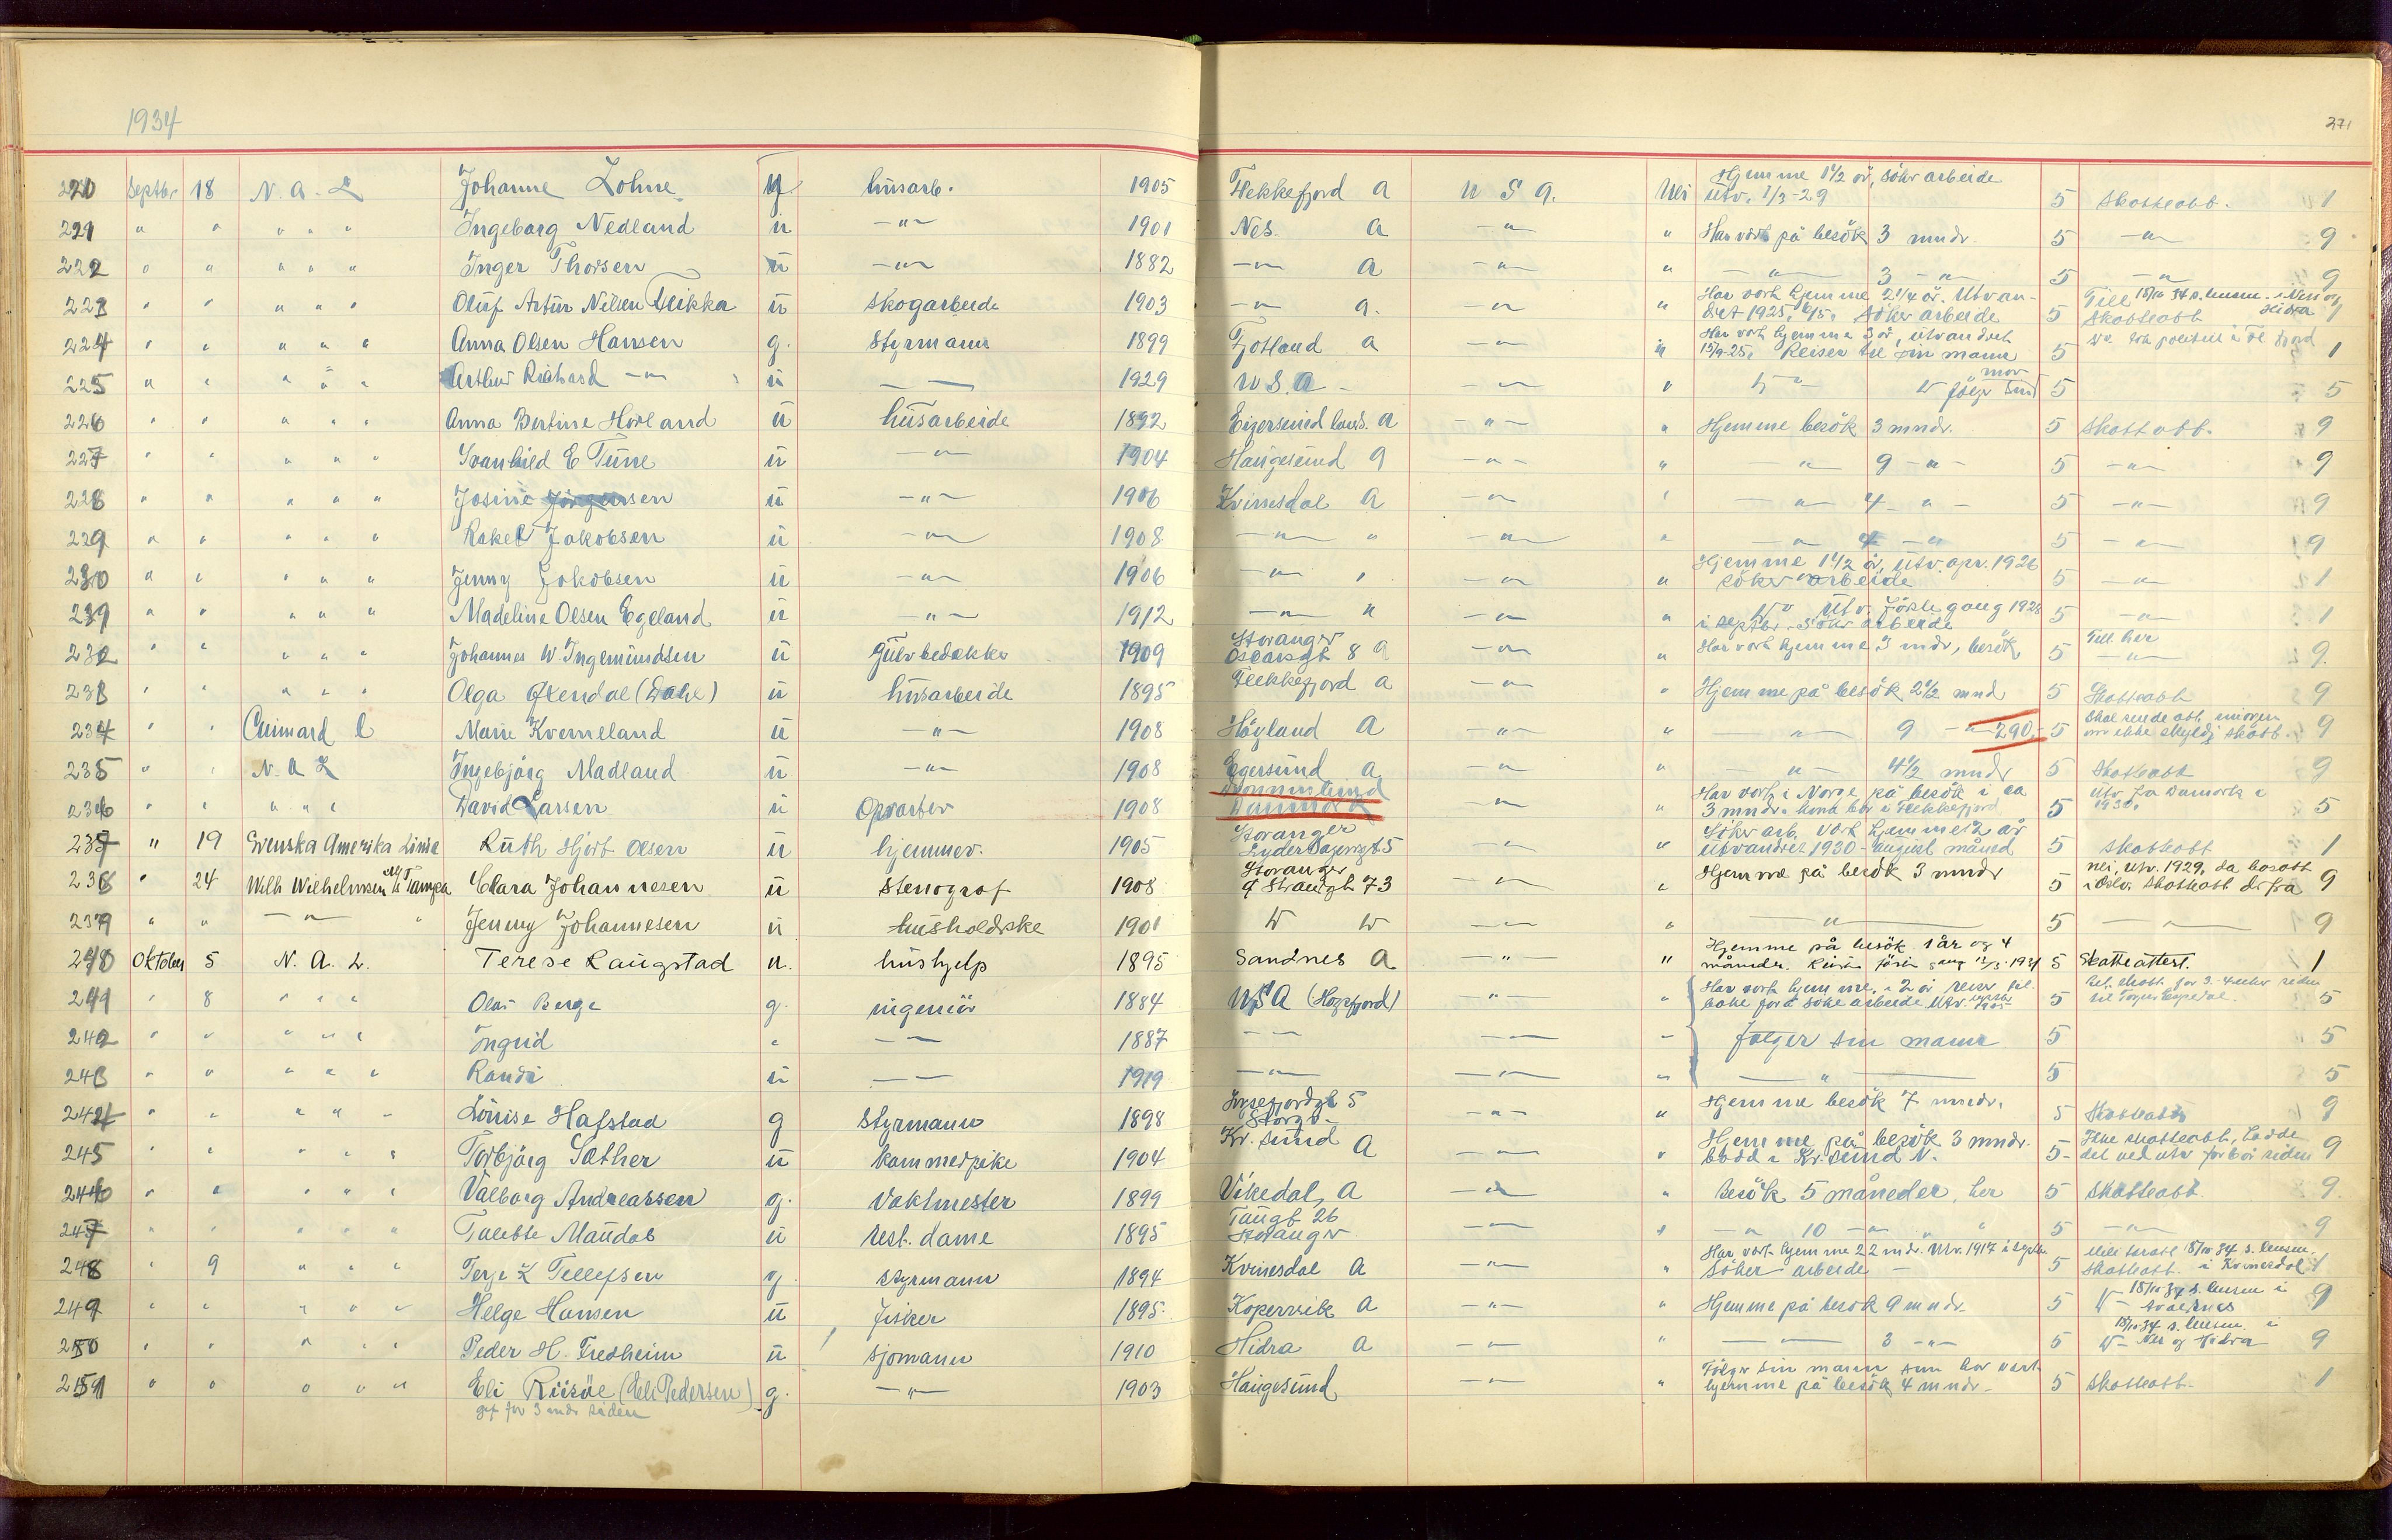 1934
271
220 Septbr 18 N. A. L Johanne Lohne g husarb. 1905 Flekkefjord a U S A. Nei Hjemme 1 1/2 år, søker arbeide utv. 1/3-29 5 Skatteatt. 1
221 " " " " " Ingeborg Nedland u -"- 1901 Nes. a -"- " Har vært på besøk 3 mndr. 5 -"- 9
222 " " " " " Inger Thorsen u -"- 1882 -"- a -"- " -"- 3 -"- 5 -"- 9
223 " " " " " Oluf Artur Nelsen Fleikka u Skogarbeide 1903 -"- a. -"- " Har vært hjemme 2 1/4 år. Utvandret 1925, søker arbeide 5 Till 15/10 34 s. lensm. i Nes og Hidra Skatteatt 1
224 " " " " " Anna Olsen Hansen g. Styrmann 1899 Fjotland a -"- " Har vært hjemme 3 år, utvandret 15/9-25. Reiser til sin mann 5 1
225 " " " " " Arthur Richard -"- u -- 1929 U. S. A - -"- " følger sin mor 5 5
226 " " " " " Anna Bertine Hovland u husarbeide 1892 Eigersund lands. a -"- " Hjemme besøk 3 mndr. 5 Skatteatt. 9
227 " " " " " Svanhild E Tune u -"- 1904 Haugesund a -"- " -"- 9 -"- 5 -"- 9
228 " " " " " Josine Jörgensen u -"- 1906 Kvinesdal a -"- " -"- 4 -"- 5 -"- 9
229 " " " " " Rakel Jakobsen u -"- 1908 -"- " -"- " -"- 4 -"- 5 -"- 9
230 " " " " " Jenny Jakobsen u -"- 1906 -"- " -"- " Hjemme 1 1/2 år, utv. apr. 1926 søker arbeide 5 -"- 1
231 " " " " " Madeline Olsen Egeland u -"- 1912 -"- " -"- " Utv. første gang 1928 i septbr. søker arbeide 5 -"- 1
232 " " " " " Johannes W. Ingemundsen u Gulvbedekker 1909 Stavanger Oscarsgt 8 a -"- " Har vært hjemme 3 mdr, besøk 5 Till her -"- 9.
233 " " " " " Olga Glendal (Dahl) u husarbeide 1895 Flekkefjord a -"- " Hjemme på besök 2 1/2 mnd 5 Skatteatt 9
234 " " Cunard L Marie Kverneland u -"- 1908 Høyland a -"- " -"- 9 -"- 290.- 5 Skal sende att. imorgen om ikke skyldig skatt. 9
235 " " N. A L Ingebjørg Madland u -"- 1908 Egersund a -"- " -"- 4 1/2 mndr 5 Skatteatt 9
236 " " " " " David Larsen u Opvarter 1908 Danmark -"- " Har vært i Norge på besøk i ca 3 mndr. kona bor i Flekkefjord 5 Utv fra Danmark i 1930. 5
237 " 19 Svenska Amerika Linie Ruth Hjort Olsen u hjemmev. 1905 Stavanger Lyder Sagensgt 5 -"- " Søker arb. vært hjemme 2 år utvandret 1930 - august måned 5 Skatteatt 1
238 " 24 Wilh Wilhelmsen M/S Tampa Clara Johannesen u Stenograf 1908 Stavanger 73 -"- " Hjemme på besøk 3 mndr 5 nei, utv. 1929, da bosatt i Oslo. Skatteatt derfra 9
239 " " -"- " Jenny Johannesen u husholdske 1901 -"- " -"- 5 -"- 9
240 Oktober 5 N. A. L. Terese Raugstad u. hushjelp 1895 Sandnes a -"- " Hjemme på besök 1 år og 4 måneder. 5 Skatteattest. 1
241 " 8 " " " Olai Berge g. ingeniør 1884 USA (Høgsfjord) -"- " Har vært hjemme i 2 år reiser tilbake for å søke arbeide 5 5
242 " " " " " Ingrid " -- 1887 -- -- " følger sin mann 5 5
243 " " " " " Randi u -- 1919 -"- -"- " -"- 5 5
244 " " " " " Lovise Hafstad g Styrmann 1898 -"- " Hjemme besøk 7 mndr. 5 Skatteatt 9
245 " " " " " Torbjørg Sæther u kammerpike 1904 Kr. sund a -"- " Hjemme på besøk 3 mndr. bodd i Kr. sund N. 5 Ikke skatteatt, hadde det ved utv for 6 år siden 9
246 " " " " " Valborg Andreassen g. Vaktmester 1899 Vikedal, a -"- " Besøk 5 måneder, her 5 Skatteatt. 9.
247 " " " " " Talette Maudal u rest. dame 1895 Taugt 26 Stavanger -"- " -"- 10 -"- " " 5 -"- 9
248 " 9 " " " Terje L Tellefsen g. styrmann 1894 Kvinesdal a -"- " Har vært hjemme 22 mdr. Utv. 1917 i septbr. søker arbeide - 5 15/10 34 s. lensm. i Kvinesdal Skatteatt. 1
249 " " " " " Helge Hansen u fisker 1895. Kopervik a -"- " Hjemme på besøk 9 mndr. 5 15/10 34 s. lensm i Avaldsnes 9
250 " " " " " Peder H. Tredheim u sjømann 1910 Hidra a -"- " -"- 3 -"- 5 15/10 34 s. lensm. i Nes og Hidra 9
251 " " " " " Eli Riisøe (Eli Pedersen) g. -"- 1903 Haugesund -"- " Følger sin mann som har vært hjemme på besøk 4 mndr. 5 Skatteatt. 1
gift for 3 mdr siden